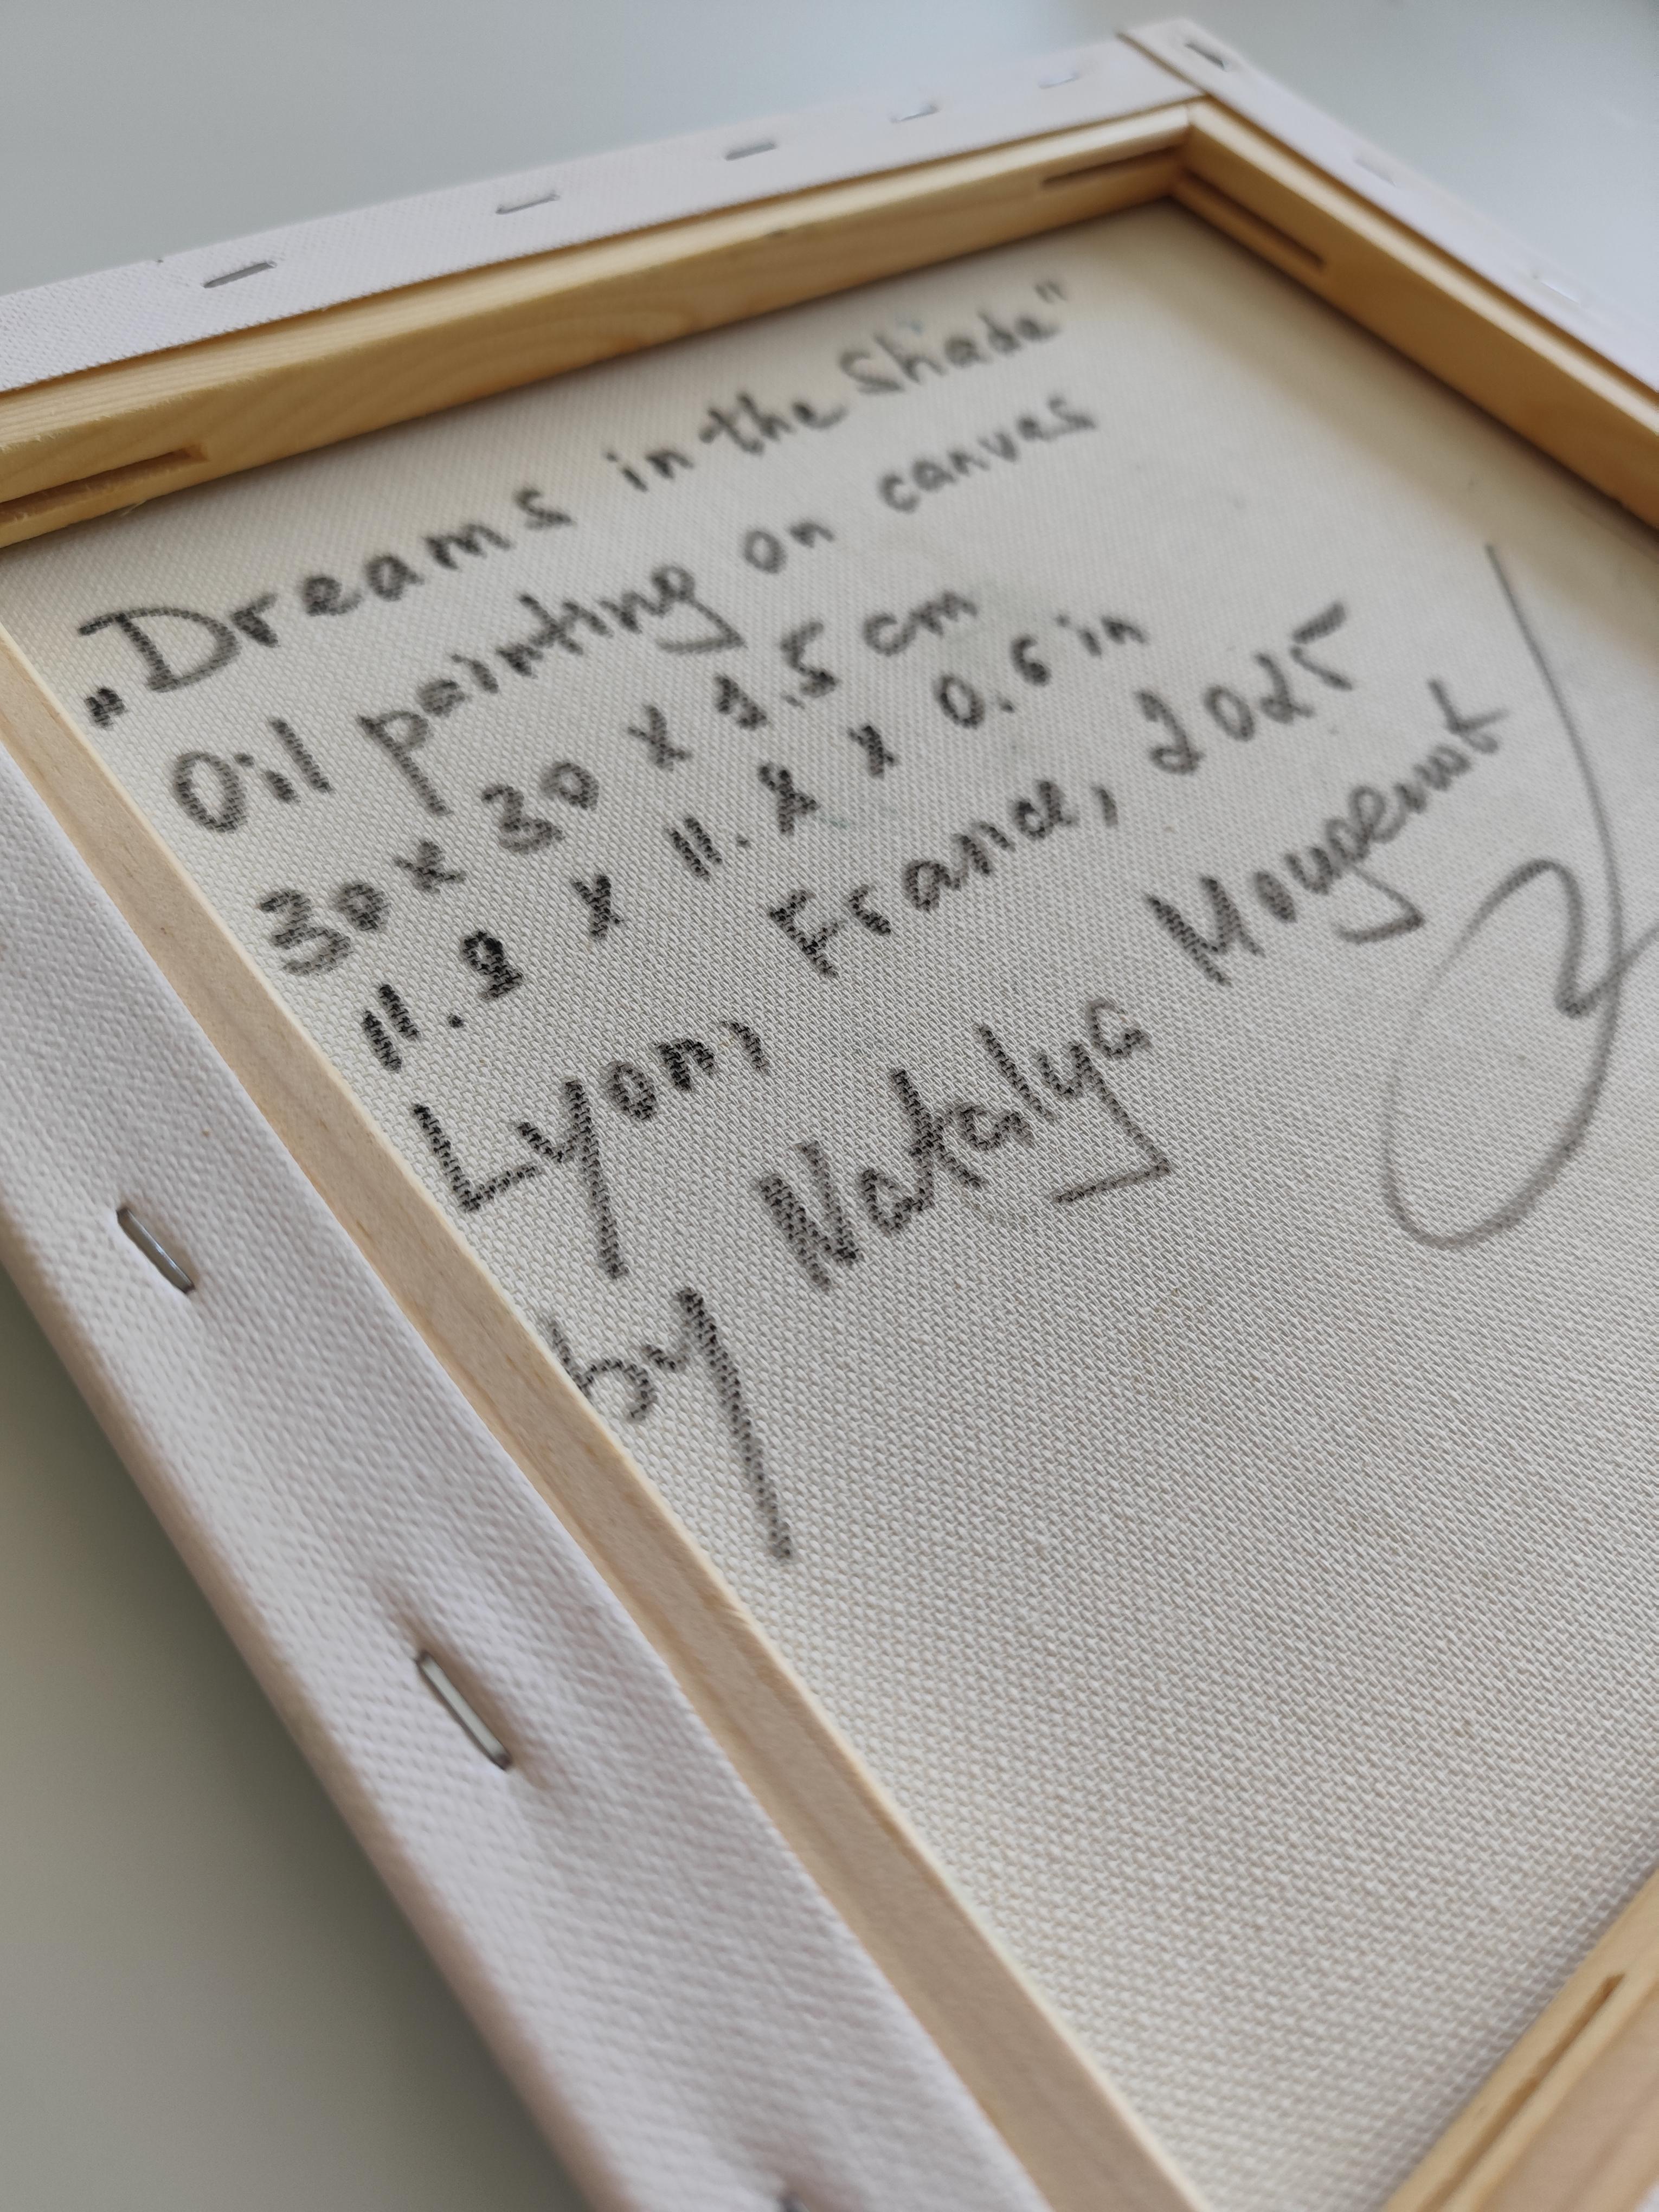 „Dreams in the Shade"
Oil painting on canvas
30 x 30 x 1.5 cm
11.8 x 11.8 x 0.6 in
Lyon, France, 2025
by Natalya Mougenot